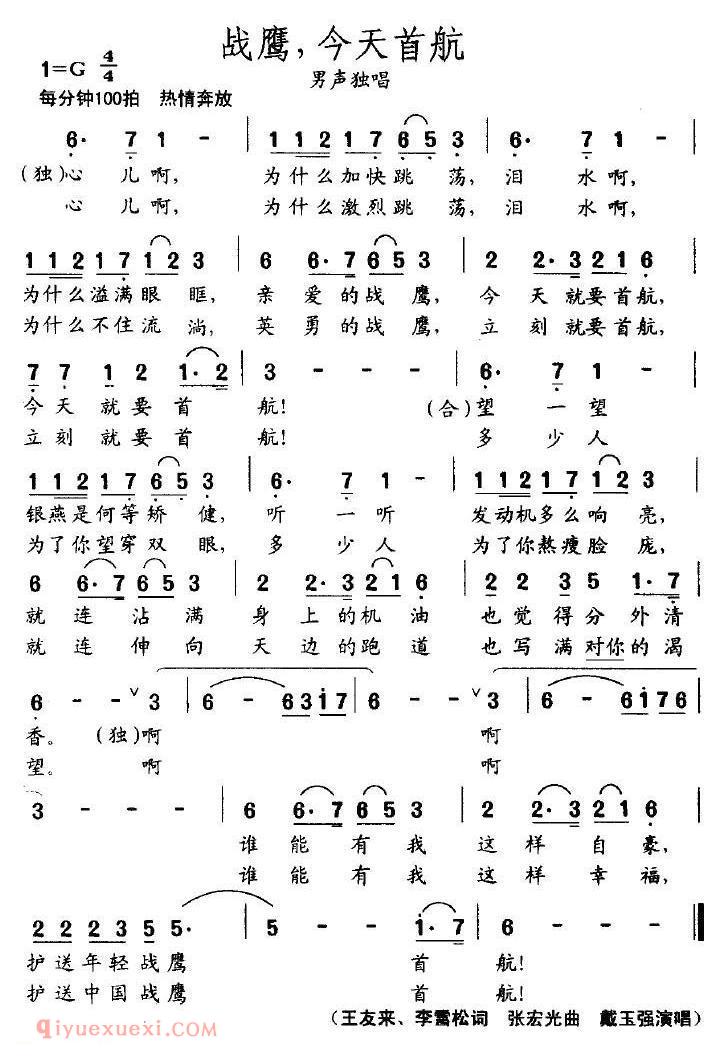 战鹰，今天首航
1=G 4/4
男声独唱
每分钟100拍 热情奔放
6· 7 1 - | 1 1 2 1 7 6 5 3 | 6· 7 1 - |
（独）心儿啊， 为什么加快跳荡， 泪水啊，
心儿啊， 为什么激烈跳荡， 泪水啊，
1 1 2 1 7 1 2 3 | 6 6· 7 6 5 3 | 2 2· 3 2 1 6 |
为什么溢满眼眶， 亲爱的战鹰， 今天就要首航，
为什么不住流淌， 英勇的战鹰， 立刻就要首航，
7 7 1 2 1· 2 | 3 - - - | 6· 7 1 - |
今天就要首航！ （合）望一望
立刻就要首航！ 多少人
1 1 2 1 7 6 5 3 | 6· 7 1 - | 1 1 2 1 7 1 2 3 |
银燕是何等矫健， 听一听 发动机多么响亮，
为了你望穿双眼， 多少人 为了你熬瘦脸庞，
6 6· 7 6 5 3 | 2 2· 3 2 1 6 | 2 2 3 5 1· 7 |
就连沾满身上的机油 也觉得分外清
就连伸向天边的跑道 也写满对你的渴
6 - - ∨ 3 | 6 - - 6 3 1 7 | 6 - - ∨ 3 | 6 - - 6 1 7 6 |
香。 （独）啊 啊
望。 啊 啊
3 - - - | 6 6· 7 6 5 3 | 2 2· 3 2 1 6 |
谁能有我 这样自豪，
谁能有我 这样幸福，
2 2 2 3 5 5· | 5 - - 1· 7 | 6 - - - ‖
护送年轻战鹰 首航！
护送中国战鹰 首航！
（王友来、李富松词 张宏光曲 戴玉强演唱）
qiyuexuexi.com